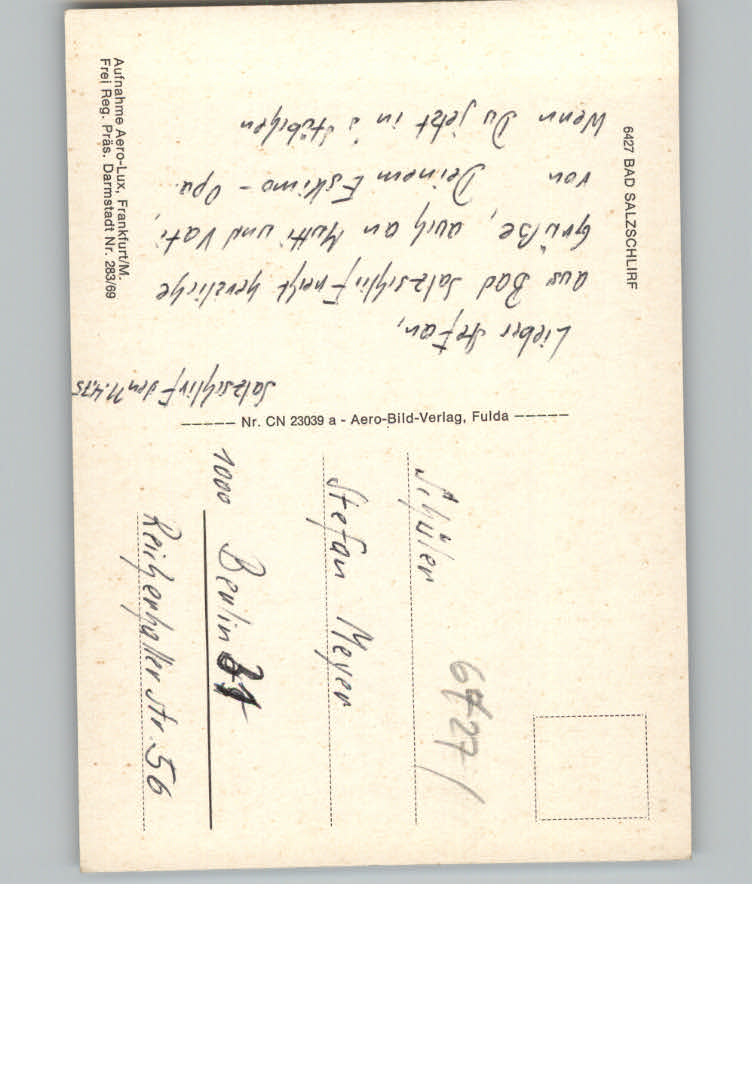 6427 BAD SALZSCHLIRF
Aufnahme Aero-Lux, Frankfurt/M.
Frei Reg. Präs. Darmstadt Nr. 283/69
Salzschlirf den 11.4.75
Lieber Stefan,
aus Bad Salzschlirf herzliche
Grüße, auch an Mutti und Vati,
von Deinem Eskimo-Opa.
Wenn Du jetzt in's
----- Nr. CN 23039 a - Aero-Bild-Verlag, Fulda -----
Schüler
Stefan Meyer
1000 Berlin
Reichenhaller Str. 56
6427/